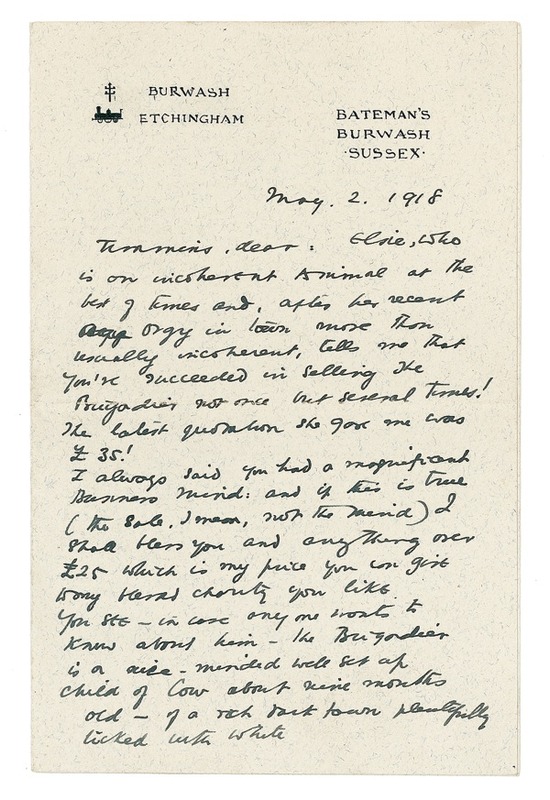 BURWASH
ETCHINGHAM
BATEMAN'S
BURWASH
·SUSSEX·
May. 2. 1918
Timmins, dear: Elsie, who
is an incoherent Animal at the
best of times and, after her recent
Orgy in town more than
usually incoherent, tells me that
You're succeeded in selling the
Brigadier not once but several times!
The latest quotation she gave me was
£35!
I always said you had a magnificent
Business Mind: and if this is true
(the Sale, I mean, not the mind) I
shall bless you and anything over
£25 which is my price you can give
to any blessed charity you like.
You see – in case any one wants to
know about him – the Brigadier
is a nice-minded well set up
child of Cow about nine months
old – of a rich dark fawn plentifully
licked with white